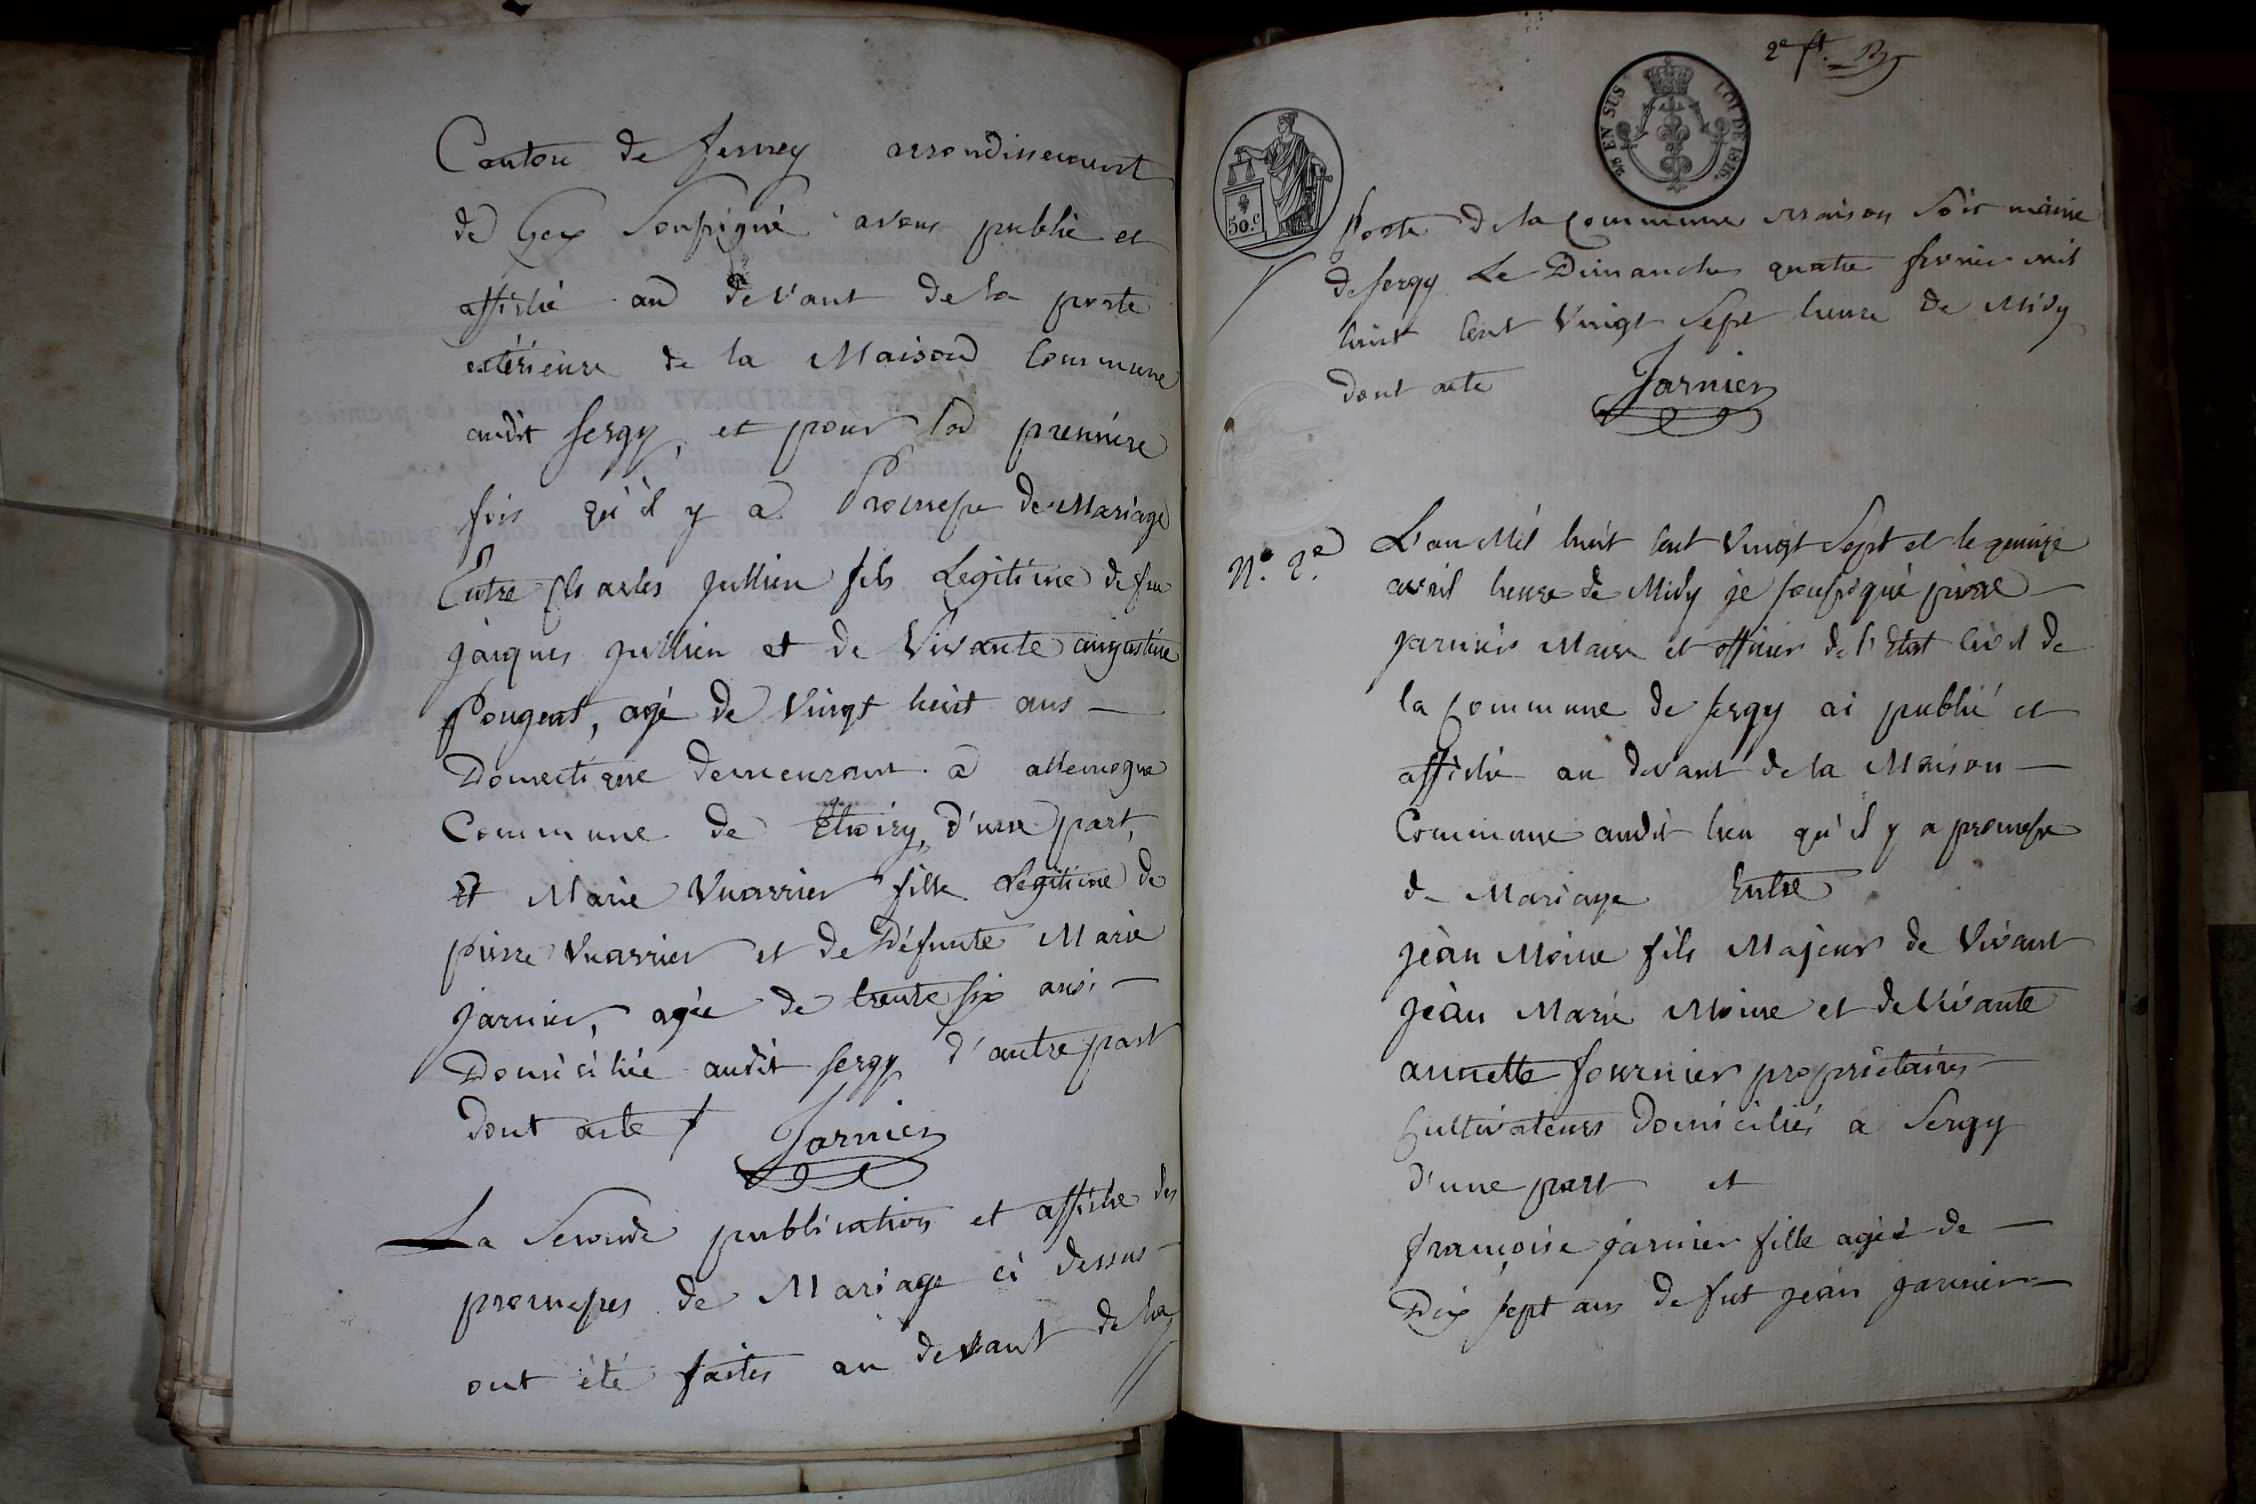 Canton de ferney arrondissement
de Gex Soussigné avons publié et
affiché au devant de la porte
extérieure de la Maison Commune
audit sergy, et pour la premiere
fois qu'il y a Promesse de Mariage
Entre Charles Jullien fils Legitime de feu
jacques jullien et de Vivante augustine
Pougent, agé de Vingt huit ans —
Domestique demeurant a allemogne
Commune de Thoiry, d'une part,
et Marie Vuarrier fille Legitime de
pierre Vuarrier et de Défunte Marie
jarnier, agée de trente six ans —
Domiciliée audit sergy d'autre part
dont acte
Jarnier
La Seconde publication et affiche des
promesses de Mariage ci dessus
ont été faites au devant de la
2e ft.
2/8 EN SUS LOI DE 1816.
50.c
porte de la Commune maison soit mairie
de sergy Le Dimanche quatre fevrier mil
huit Cent Vingt Sept heure de Midy
dont acte Jarnier
N.o 2.e
L'an Mil huit Cent Vingt Sept et le quinze
avril heure de Midy je soussigné pierre —
jarnier Maire et officier de l'Etat Civil de
la Commune de sergy ai publié et
affiché au devant de la Maison —
Commune audit lieu qu'il y a promesse
de Mariage Entre
jean Moine fils Majeur de Vivant
jean Marie Moine et de Vivante
annette fournier propriétaires —
Cultivateurs Domiciliés a Sergy
d'une part et
françoise jarnier fille agée de —
Dix sept ans de fut jean jarnier —